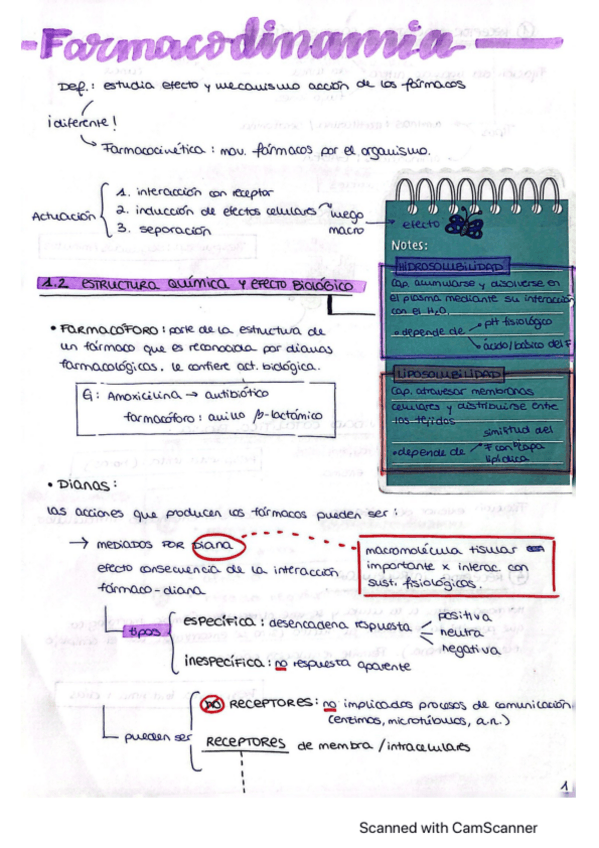 - Farmacodinamia
Def.: estudia efecto y mecanismo acción de los fármacos
¡diferente!
Farmacocinética: mov. fármacos por el organismo.
Actuación
1. interacción con receptor
2. inducción de efectos celulares luego macro
3. separación
efecto
Notes:
HIDROSOLUBILIDAD
Cap. acumularse y disolverse en
el plasma mediante su interacción
con el H2O.
• depende de
pH fisiológico
ácido/básico del F
LIPOSOLUBILIDAD
Cap. atravesar membranas
celulares y distribuirse entre
los tejidos
• depende de
similitud del
F con capa
lipídica
1.2 ESTRUCTURA QUÍMICA Y EFECTO BIOLÓGICO
• FARMACÓFORO: parte de la estructura de
un fármaco que es reconocida por dianas
farmacológicas. le confiere act. biológica.
Ej: Amoxicilina → antibiótico
farmacóforo: anillo β-lactámico
• Dianas:
Las acciones que producen los fármacos pueden ser:
→ MEDIADOS POR Diana
efecto consecuencia de la interacción
fármaco-diana
macromolécula tisular
importante x interac. con
sust. fisiológicas.
tipos
ESPECÍFICA: desencadena respuesta
positiva
neutra
negativa
INESPECÍFICA: no respuesta aparente
pueden ser
NO RECEPTORES: no implicados procesos de comunicación
(enzimas, microtúbulos, a.n.)
RECEPTORES de membra/intracelulares
1
Scanned with CamScanner